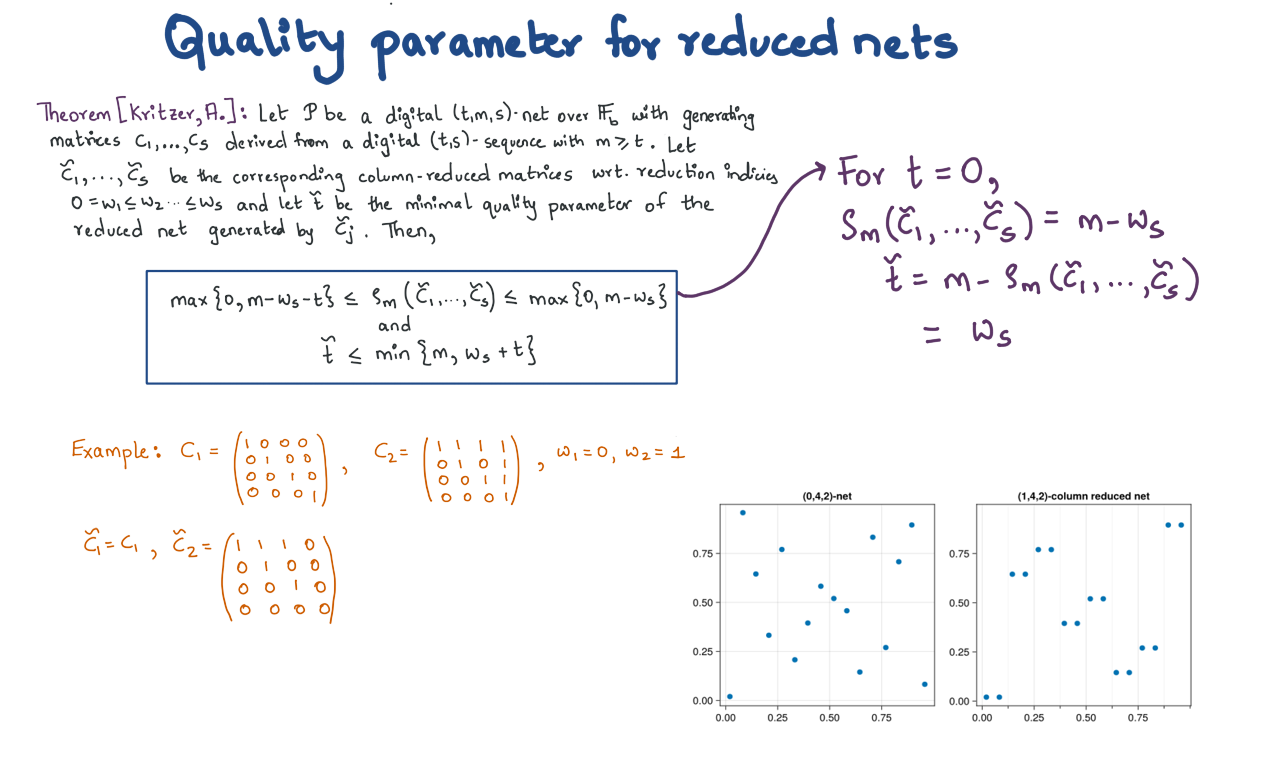 Quality parameter for reduced nets
Theorem [Kritzer, A.]: Let P be a digital (t,m,s)-net over 𝔽_b with generating
matrices C₁,...,Cs derived from a digital (t,s)-sequence with m ≥ t. Let
C̆₁,...,C̆s be the corresponding column-reduced matrices wrt. reduction indicies
0 = w₁ ≤ w₂ ... ≤ ws and let t̆ be the minimal quality parameter of the
reduced net generated by C̆j. Then,
max{0, m-ws-t} ≤ ρm(C̆₁,...,C̆s) ≤ max{0, m-ws}
and
t̆ ≤ min{m, ws + t}
For t = 0,
ρm(C̆₁,...,C̆s) = m - ws
t̆ = m - ρm(C̆₁,...,C̆s)
= ws
Example: C₁ = (1 0 0 0
0 1 0 0
0 0 1 0
0 0 0 1),
C₂ = (1 1 1 1
0 1 0 1
0 0 1 1
0 0 0 1), w₁=0, w₂=1
C̆₁ = C₁, C̆₂ = (1 1 1 0
0 1 0 0
0 0 1 0
0 0 0 0)
(0,4,2)-net
0.75
0.50
0.25
0.00
0.00 0.25 0.50 0.75
(1,4,2)-column reduced net
0.75
0.50
0.25
0.00
0.00 0.25 0.50 0.75